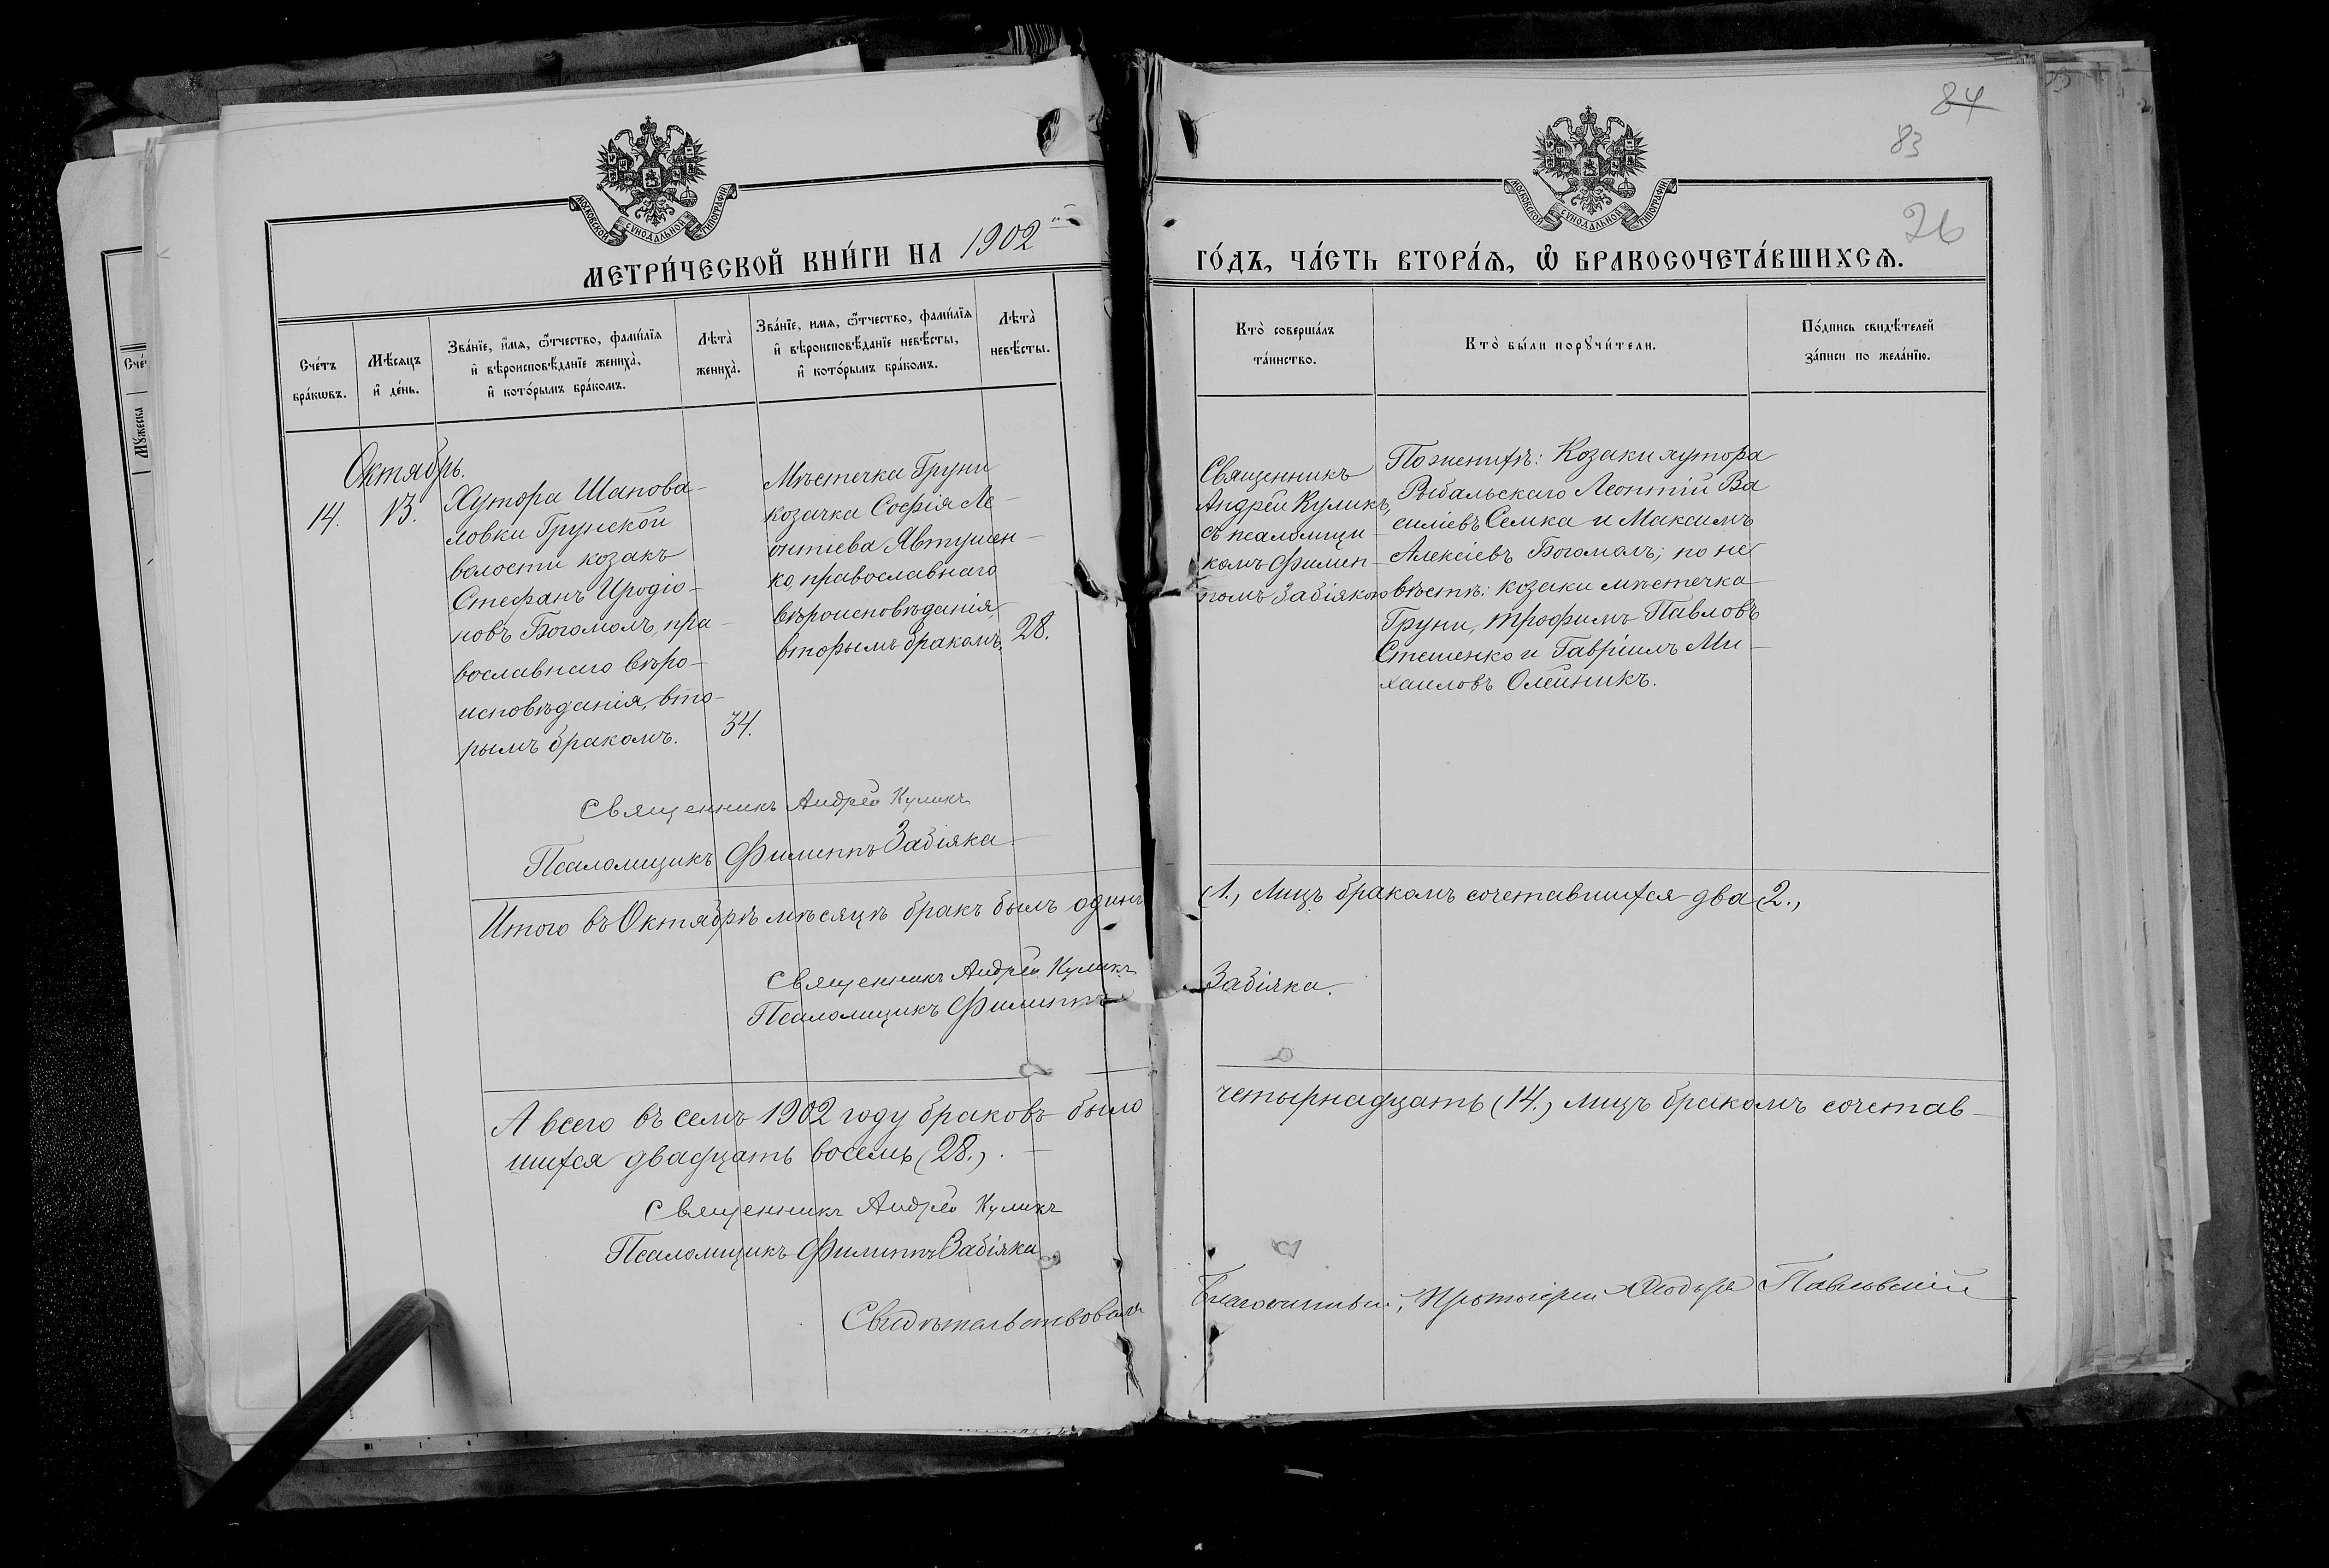 84
83
26
МОСКОВСКОЙ СѴНОДАЛЬНОЙ ТИПОГРАФІИ
МОСКОВСКОЙ СѴНОДАЛЬНОЙ ТИПОГРАФІИ
МЕТРИ́ЧЕСКОЙ КНИ́ГИ НА 1902й
ГО́ДЪ, ЧА́СТЬ ВТОРА́Ѧ, Ѽ БРАКОСОЧЕТА́ВШИХСѦ.
Сче́тъ
бра́кѡвъ.
Мѣ́сѧцъ
и҆ де́нь.
Зва́нїе, и҆́мѧ, ѻ҆́тчество, фами́лїѧ
и҆ вѣроисповѣ́данїе жениха̀,
и҆ кото́рымъ бра́комъ.
Лѣта̀
жениха̀.
Зва́нїе, имѧ, ѻ҆́тчество, фами́лїѧ
и҆ вѣроисповѣ́данїе невѣ́сты,
и҆ кото́рымъ бра́комъ.
Лѣта̀
невѣ́сты.
Кто̀ соверша́лъ
та́инство.
Кто̀ бы́ли порꙋчи́тели.
По́дпись свидѣ́телей
за́писи по жела́нїю.
Сче́
Мꙋжеска
Октябрь.
14.
13.
Хутора Шапова-
ловки Грунской
волости козакъ
Стефанъ Иродіо-
новъ Богомолъ, пра-
вославнаго вѣро-
исповѣданія, вто-
рымъ бракомъ.
34.
Мѣстечка Груни
козачка Софія Ле-
онтіева Явтушен-
ко, православнаго
вѣроисповѣданія,
вторымъ бракомъ.
28.
Священникъ
Андрей Куликъ,
съ псаломщи-
комъ Филип-
помъ Забіякою
По женихѣ: Козаки хутора
Рыбальскаго Леонтій Ва
силіевъ Семка и Максимъ
Алексіевъ Богомолъ; по не-
вѣстѣ: козаки мѣстечка
Груни, Трофимъ Павловъ
Стешенко и Гавріилъ Ми-
хаиловъ Олейникъ.
Священникъ Андрей Куликъ
Псаломщикъ Филиппъ Забіяка.
Итого въ Октябрѣ мѣсяцѣ бракъ былъ одинъ (1.), лицъ бракомъ сочетавшихся два (2.),
Священникъ Андрей Куликъ
Псаломщикъ Филиппъ Забіяка.
А всего въ семъ 1902 году браковъ было четырнадцать (14.) лицъ бракомъ сочетав-
шихся двадцать восемь (28.).
Священникъ Андрей Куликъ
Псаломщикъ Филиппъ Забіяка
Свидѣтельствовалъ Благочинный, Протоіерей Павловскій